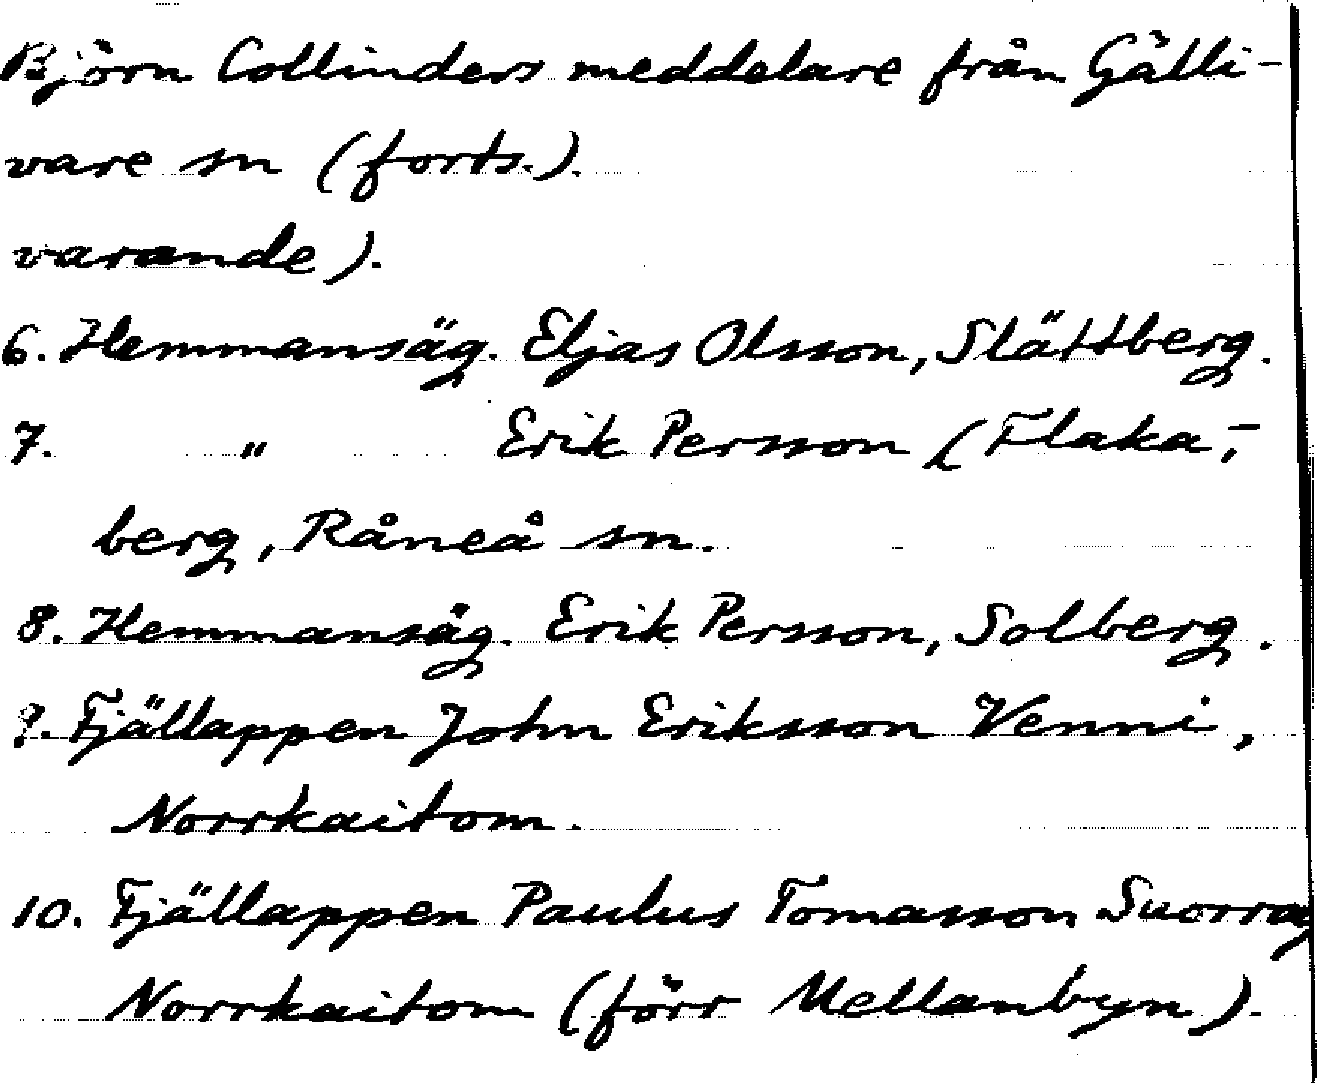 Björn Collinders meddelare från Gälli-
vare sn (forts.).
varande).
6. Hemmansäg. Eljas Olsson, Slättberg.
7. " Erik Persson (Flaka,-
berg, Råneå sn.
8. Hemmansäg. Erik Persson, Solberg.
9. Fjällappen John Eriksson Venni,
Norrkaitom.
10. Fjällappen Paulus Tomasson Suorra,
Norrkaitom (förr Mellanbyn).